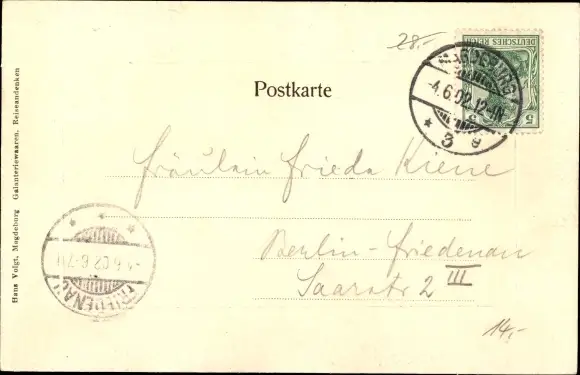 28.-
DEUTSCHES REICH
5
MAGDEBURG
-4.6.02.12-1N.
* 3 g
Postkarte
Fräulein Frieda Kiene
Berlin-Friedenau
Saarstr 2 III
FRIEDENAU
-4.6.02.6-7N
14.-
Hans Voigt, Magdeburg Galanteriewaaren, Reiseandenken